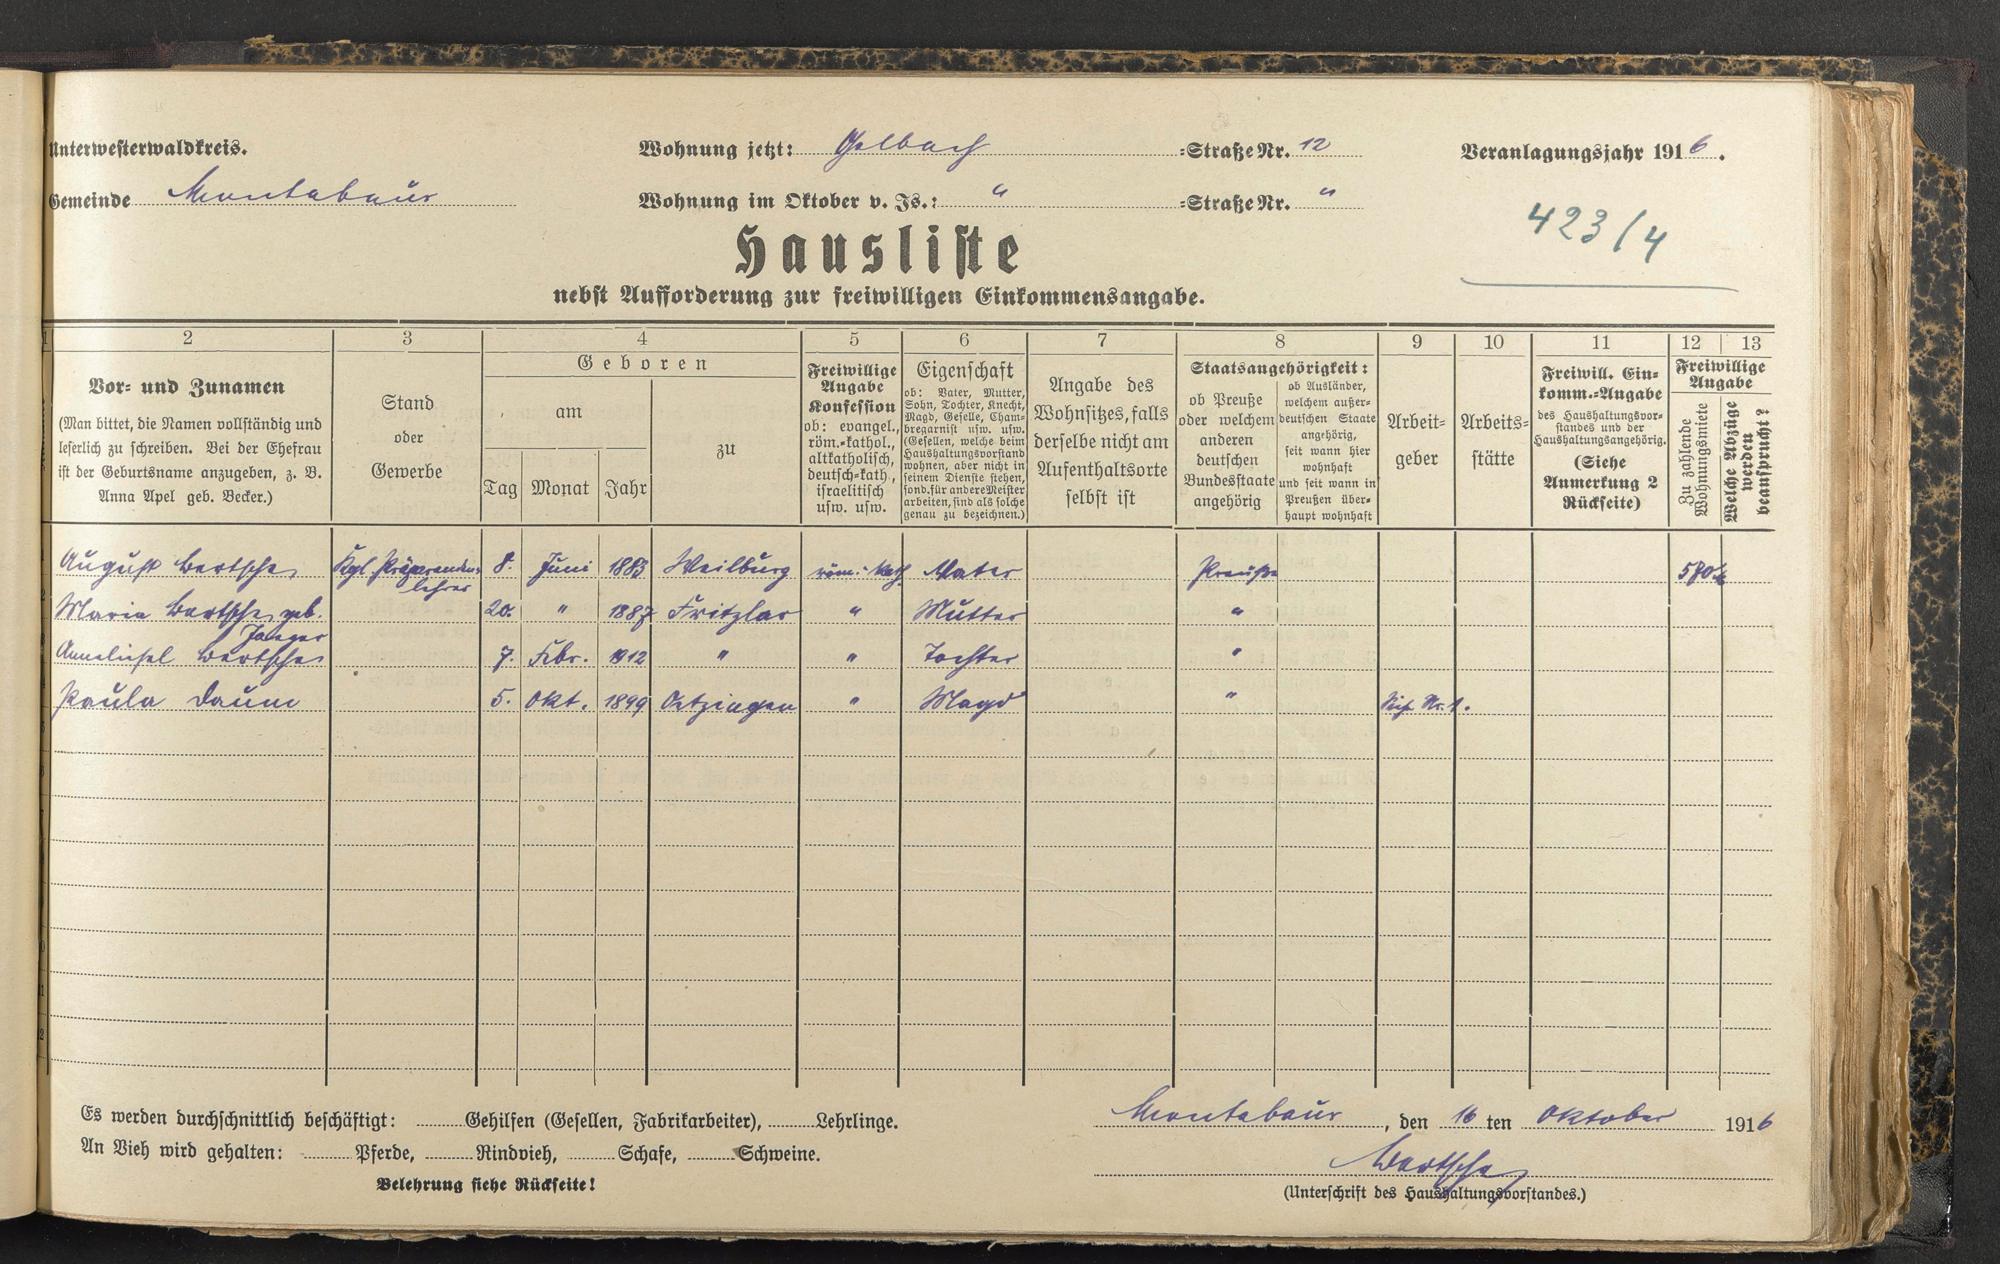 Unterwesterwaldkreis.
Wohnung jetzt: Gelbach =Straße Nr. 12
Veranlagungsjahr 1916.
Gemeinde Montabaur
Wohnung im Oktober v. Js.: " =Straße Nr. "
423/4
Hausliste
nebst Aufforderung zur freiwilligen Einkommensangabe.
1 2 3 4 5 6 7 8 9 10 11 12 13
Vor- und Zunamen
(Man bittet, die Namen vollständig und
leserlich zu schreiben. Bei der Ehefrau
ist der Geburtsname anzugeben, z. B.
Anna Apel geb. Becker.)
Stand
oder
Gewerbe
Geboren
am
Tag Monat Jahr
zu
Freiwillige
Angabe
Konfession
ob: evangel.,
röm.-kathol.,
altkatholisch,
deutsch-kath.,
israelitisch
usw. usw.
Eigenschaft
ob: Vater, Mutter,
Sohn, Tochter, Knecht,
Magd, Geselle, Cham-
bregarnist usw. usw.
(Gesellen, welche beim
Haushaltungsvorstand
wohnen, aber nicht in
seinem Dienste stehen,
sond. für andere Meister
arbeiten, sind als solche
genau zu bezeichnen.)
Angabe des
Wohnsitzes, falls
derselbe nicht am
Aufenthaltsorte
selbst ist
Staatsangehörigkeit:
ob Preuße
oder welchem
anderen
deutschen
Bundesstaate
angehörig
ob Ausländer,
welchem außer-
deutschen Staate
angehörig,
seit wann hier
wohnhaft
und seit wann in
Preußen über-
haupt wohnhaft
Arbeit-
geber
Arbeits-
stätte
Freiwill. Ein-
komm.-Angabe
des Haushaltungsvor-
standes und der
Haushaltungsangehörig.
(Siehe
Anmerkung 2
Rückseite)
Freiwillige
Angabe
Zu zahlende
Wohnungsmiete
Welche Abzüge
werden
beansprucht?
August Bertsche Kgl. Präparanden- 8. Juni 1883 Weilburg röm.-kath. Vater Preuße 580 M
lehrer
Maria Bertsche geb. 20. " 1887 Fritzlar " Mutter "
Jaeger
Anneliesel Bertsche 7. Febr. 1912 " " Tochter "
Paula Daum 5. Okt. 1899 Ötzingen " Magd " Nr. 1.
Es werden durchschnittlich beschäftigt: Gehilfen (Gesellen, Fabrikarbeiter), Lehrlinge.
Montabaur, den 16 ten Oktober 1916
An Vieh wird gehalten: Pferde, Rindvieh, Schafe, Schweine.
Bertsche
Belehrung siehe Rückseite!
(Unterschrift des Haushaltungsvorstandes.)